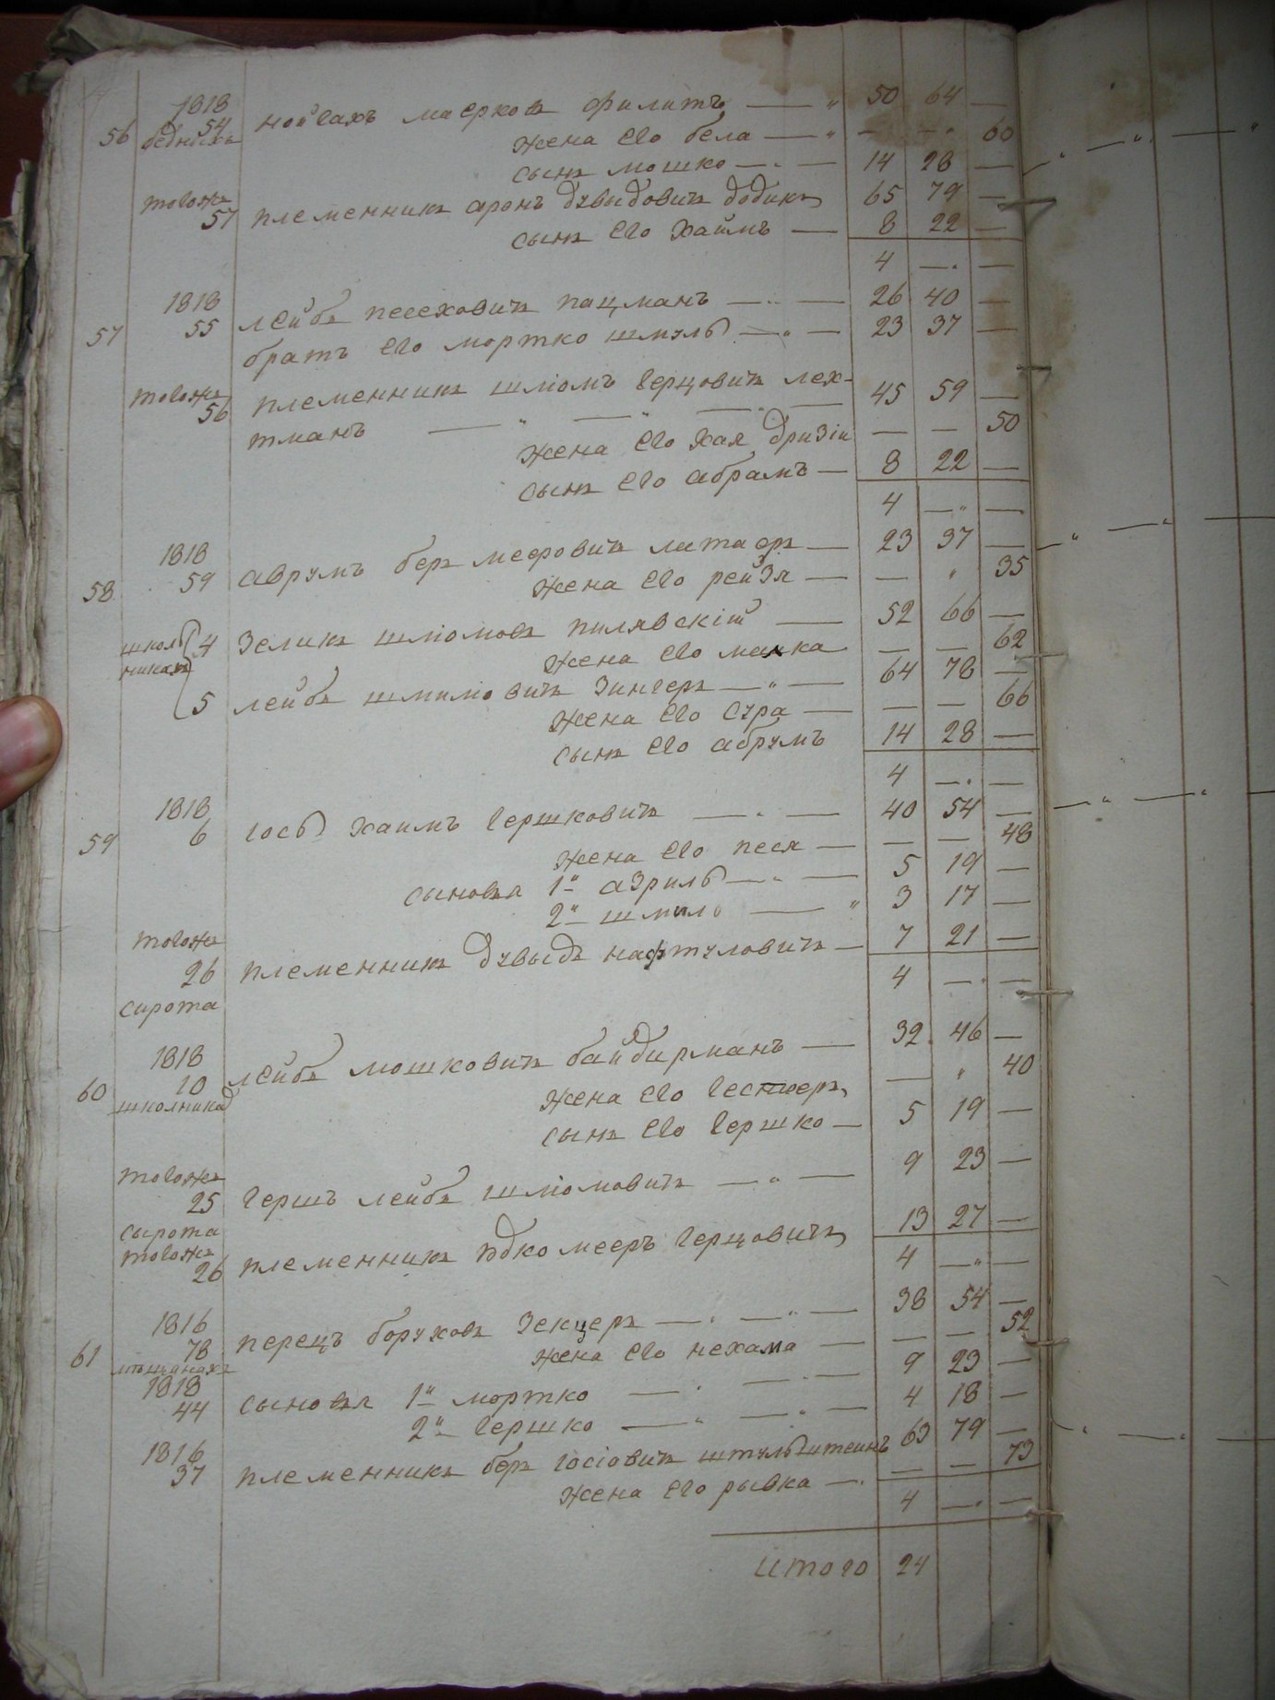 1818
56 54 Нойсахъ Маерковъ Филитъ — " 50 64 —
бѣднякъ жена его бела — " — — " 60
сынъ мошко — . — 14 28 —
тогожъ
57 племенникъ аронъ дувыдовичъ додикъ 65 79 —
сынъ его хаимъ — 8 22 —
4 — . —
1818
57 55 лейба песеховичъ пацманъ — . — 26 40 —
братъ его мортко шмуль — " — 23 37 —
тогожъ
56 племенникъ шліомъ герцовичъ лех-
тманъ — " — . — 45 59 —
жена его хая — — 50
сынъ его абрамъ — 8 22 —
4 — " —
1818
58 59 аврумъ беръ меоровичъ — 23 37 —
жена его рейзя — — " 35
школь
никахъ 4 зеликъ шліомовъ пилявскій — 52 66 —
жена его малка — — 62
5 лейба шмиліовичъ зингеръ — " — 64 78 —
жена его сура — — — 66
сынъ его абрумъ 14 28 —
4 — . —
1818
59 6 іось хаимъ гершковичъ — . — 40 54 —
жена его песя — — — 48
сыновья 1й азриль — . — 5 19 —
2й шмило — " 3 17 —
тогожъ
26 племенникъ дувыдъ нафтуловичъ — 7 21 —
сирота 4 — . —
1818
60 10 лейба мошковичъ байдирманъ — 32 46 —
школникъ жена его гестеръ — " 40
сынъ его гершко — 5 19 —
тогожъ
25 гершъ лейба шліомовичъ — " — 9 23 —
сырота
тогожъ
26 племенникъ мееръ герцовичъ 13 27 —
4 — " —
1816
61 78 перецъ боруховъ зекцеръ — . — " — 38 54 —
мѣщанахъ жена его нехама — — — 52
1818
44 сыновья 1й мортко — . — . — 9 23 —
2й гершко — " — " — 4 18 —
1816
37 племенникъ беръ іосіовичъ штульштеинъ 63 79 —
жена его рывка — . — — 73
4 — . —
итого 24